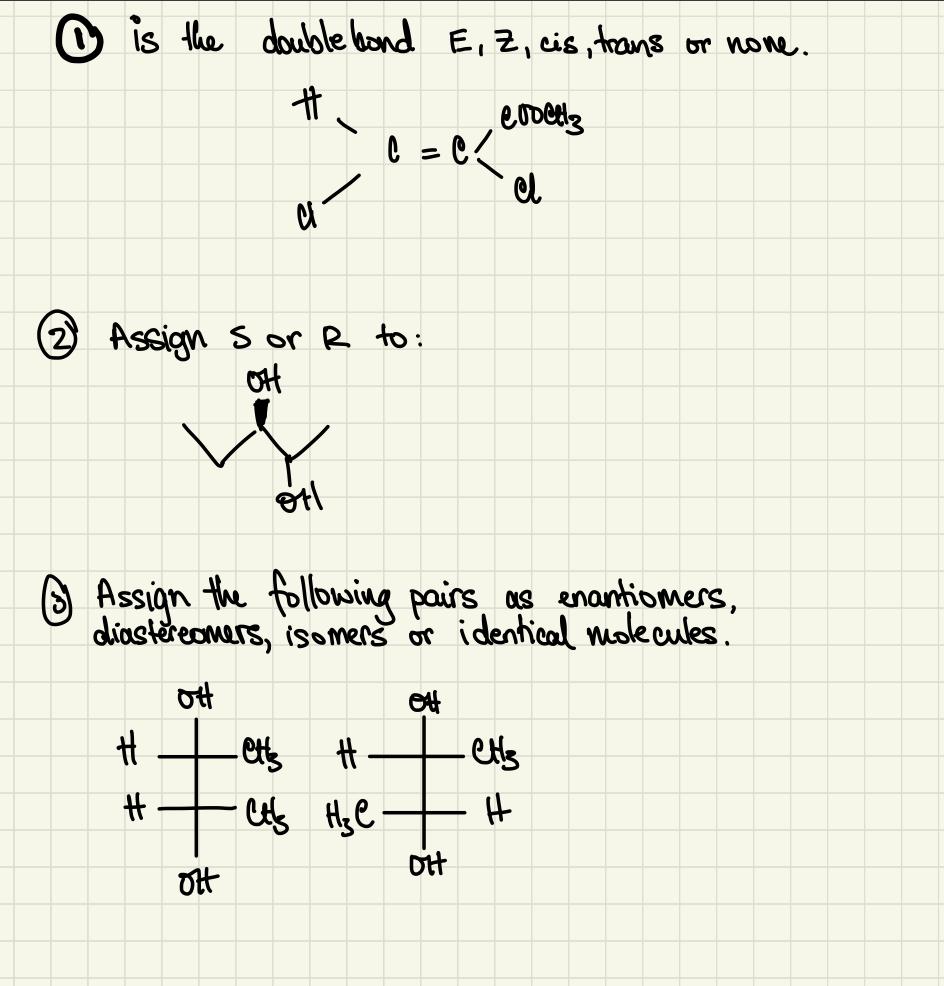 ① is the double bond E, Z, cis, trans or none.
H
COOCH3
C = C
Cl
Cl
② Assign S or R to:
OH
OH
③ Assign the following pairs as enantiomers,
diastereomers, isomers or identical molecules.
OH OH
H CH3 H CH3
H CH3 H3C H
OH OH